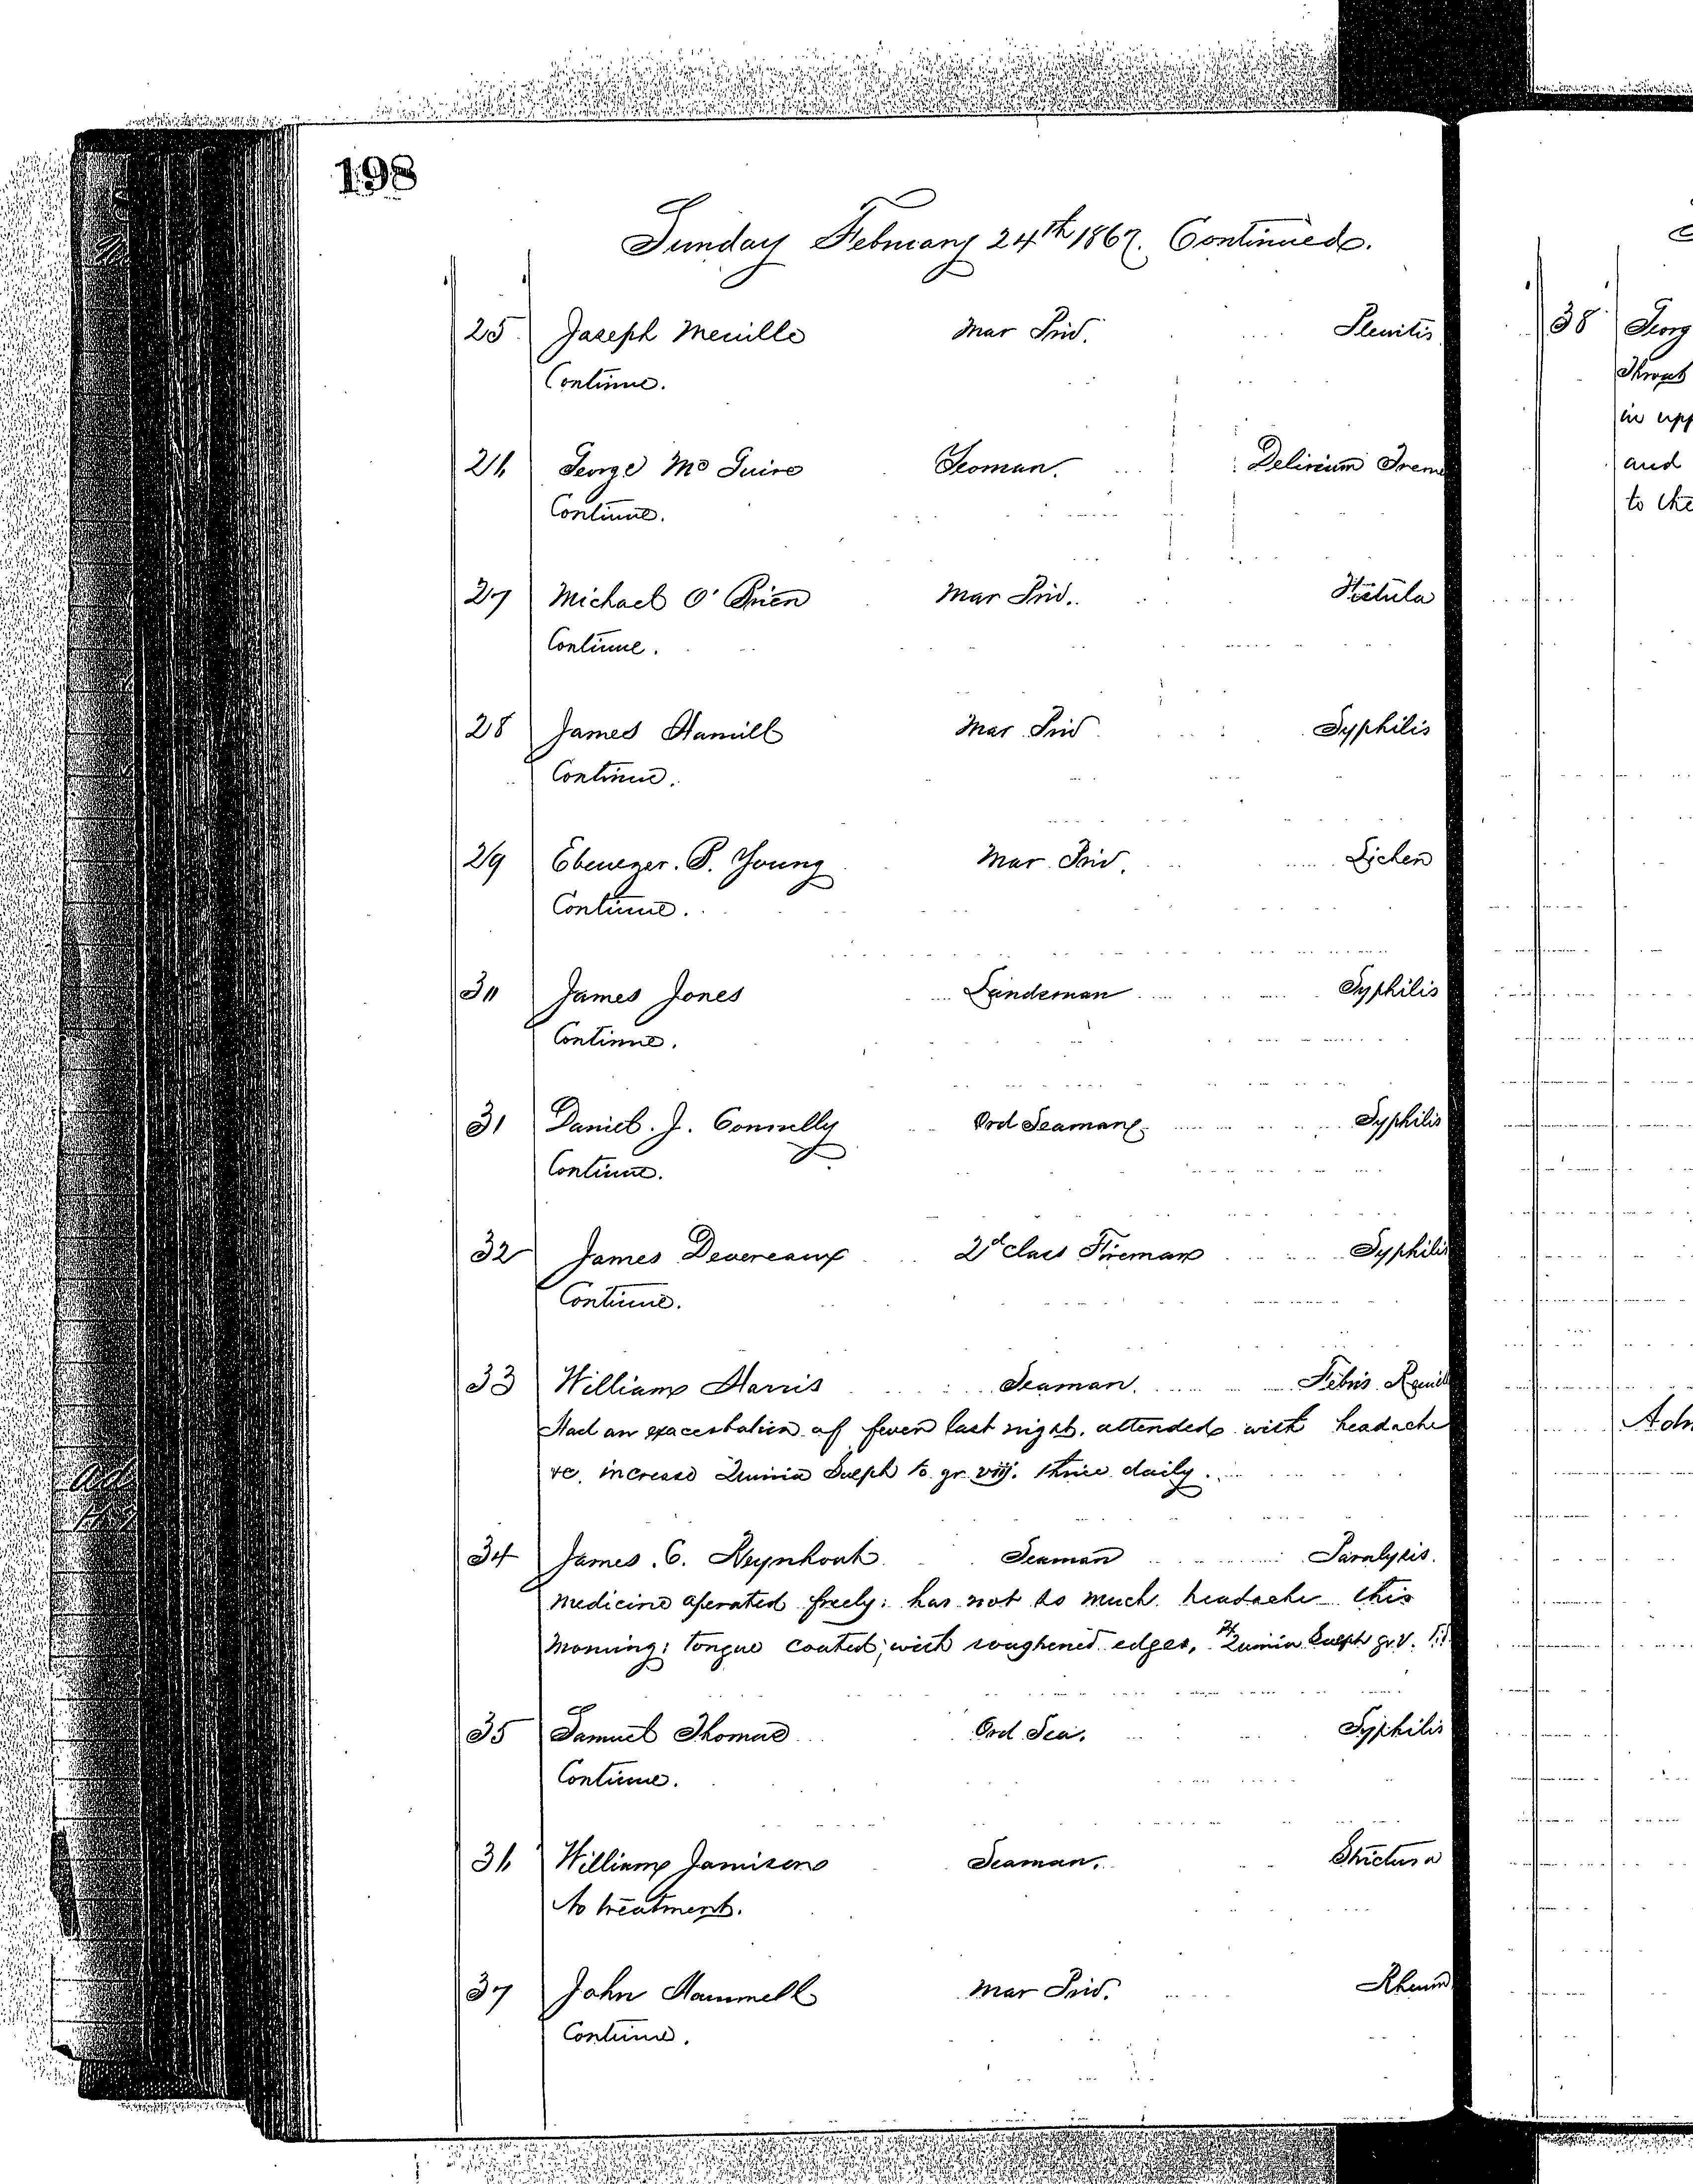 198
Sunday February 24th 1867. Continued.
25 Joseph Meville Mar Priv. Pleuritis
Continue.
26 George McGuire Yeoman. Delirium Treme
Continue.
27 Michael O'Brien Mar Priv. Fistula
Continue.
28 James Hamill Mar Priv Syphilis
Continue.
29 Ebenezer. P. Young Mar Priv. Lichen
Continue.
30 James Jones Landsman Syphilis
Continue.
31 Daniel. J. Connelly Ord Seaman. Syphilis
Continue.
32 James Devereaux 2d Class Fireman Syphilis
Continue.
33 William Harris Seaman. Febris Remitt
Had an exacerbation of fever last night, attended with headache
&c. increase Quinia Sulph to gr viij. thrice daily.
34 James. C. Seaman Paralysis.
medicine operated freely: has not so much headache this
morning: tongue coated; with roughened edges, Rx Quinia Sulph gr. V.
35 Samuel Thomas Ord Sea. Syphilis
Continue.
36 William Jamison Seaman. Strictura
No treatment.
37 John Hammell Mar Priv. Rheum
Continue.
38 Georg
Throat
in upp
and
to the
Adm